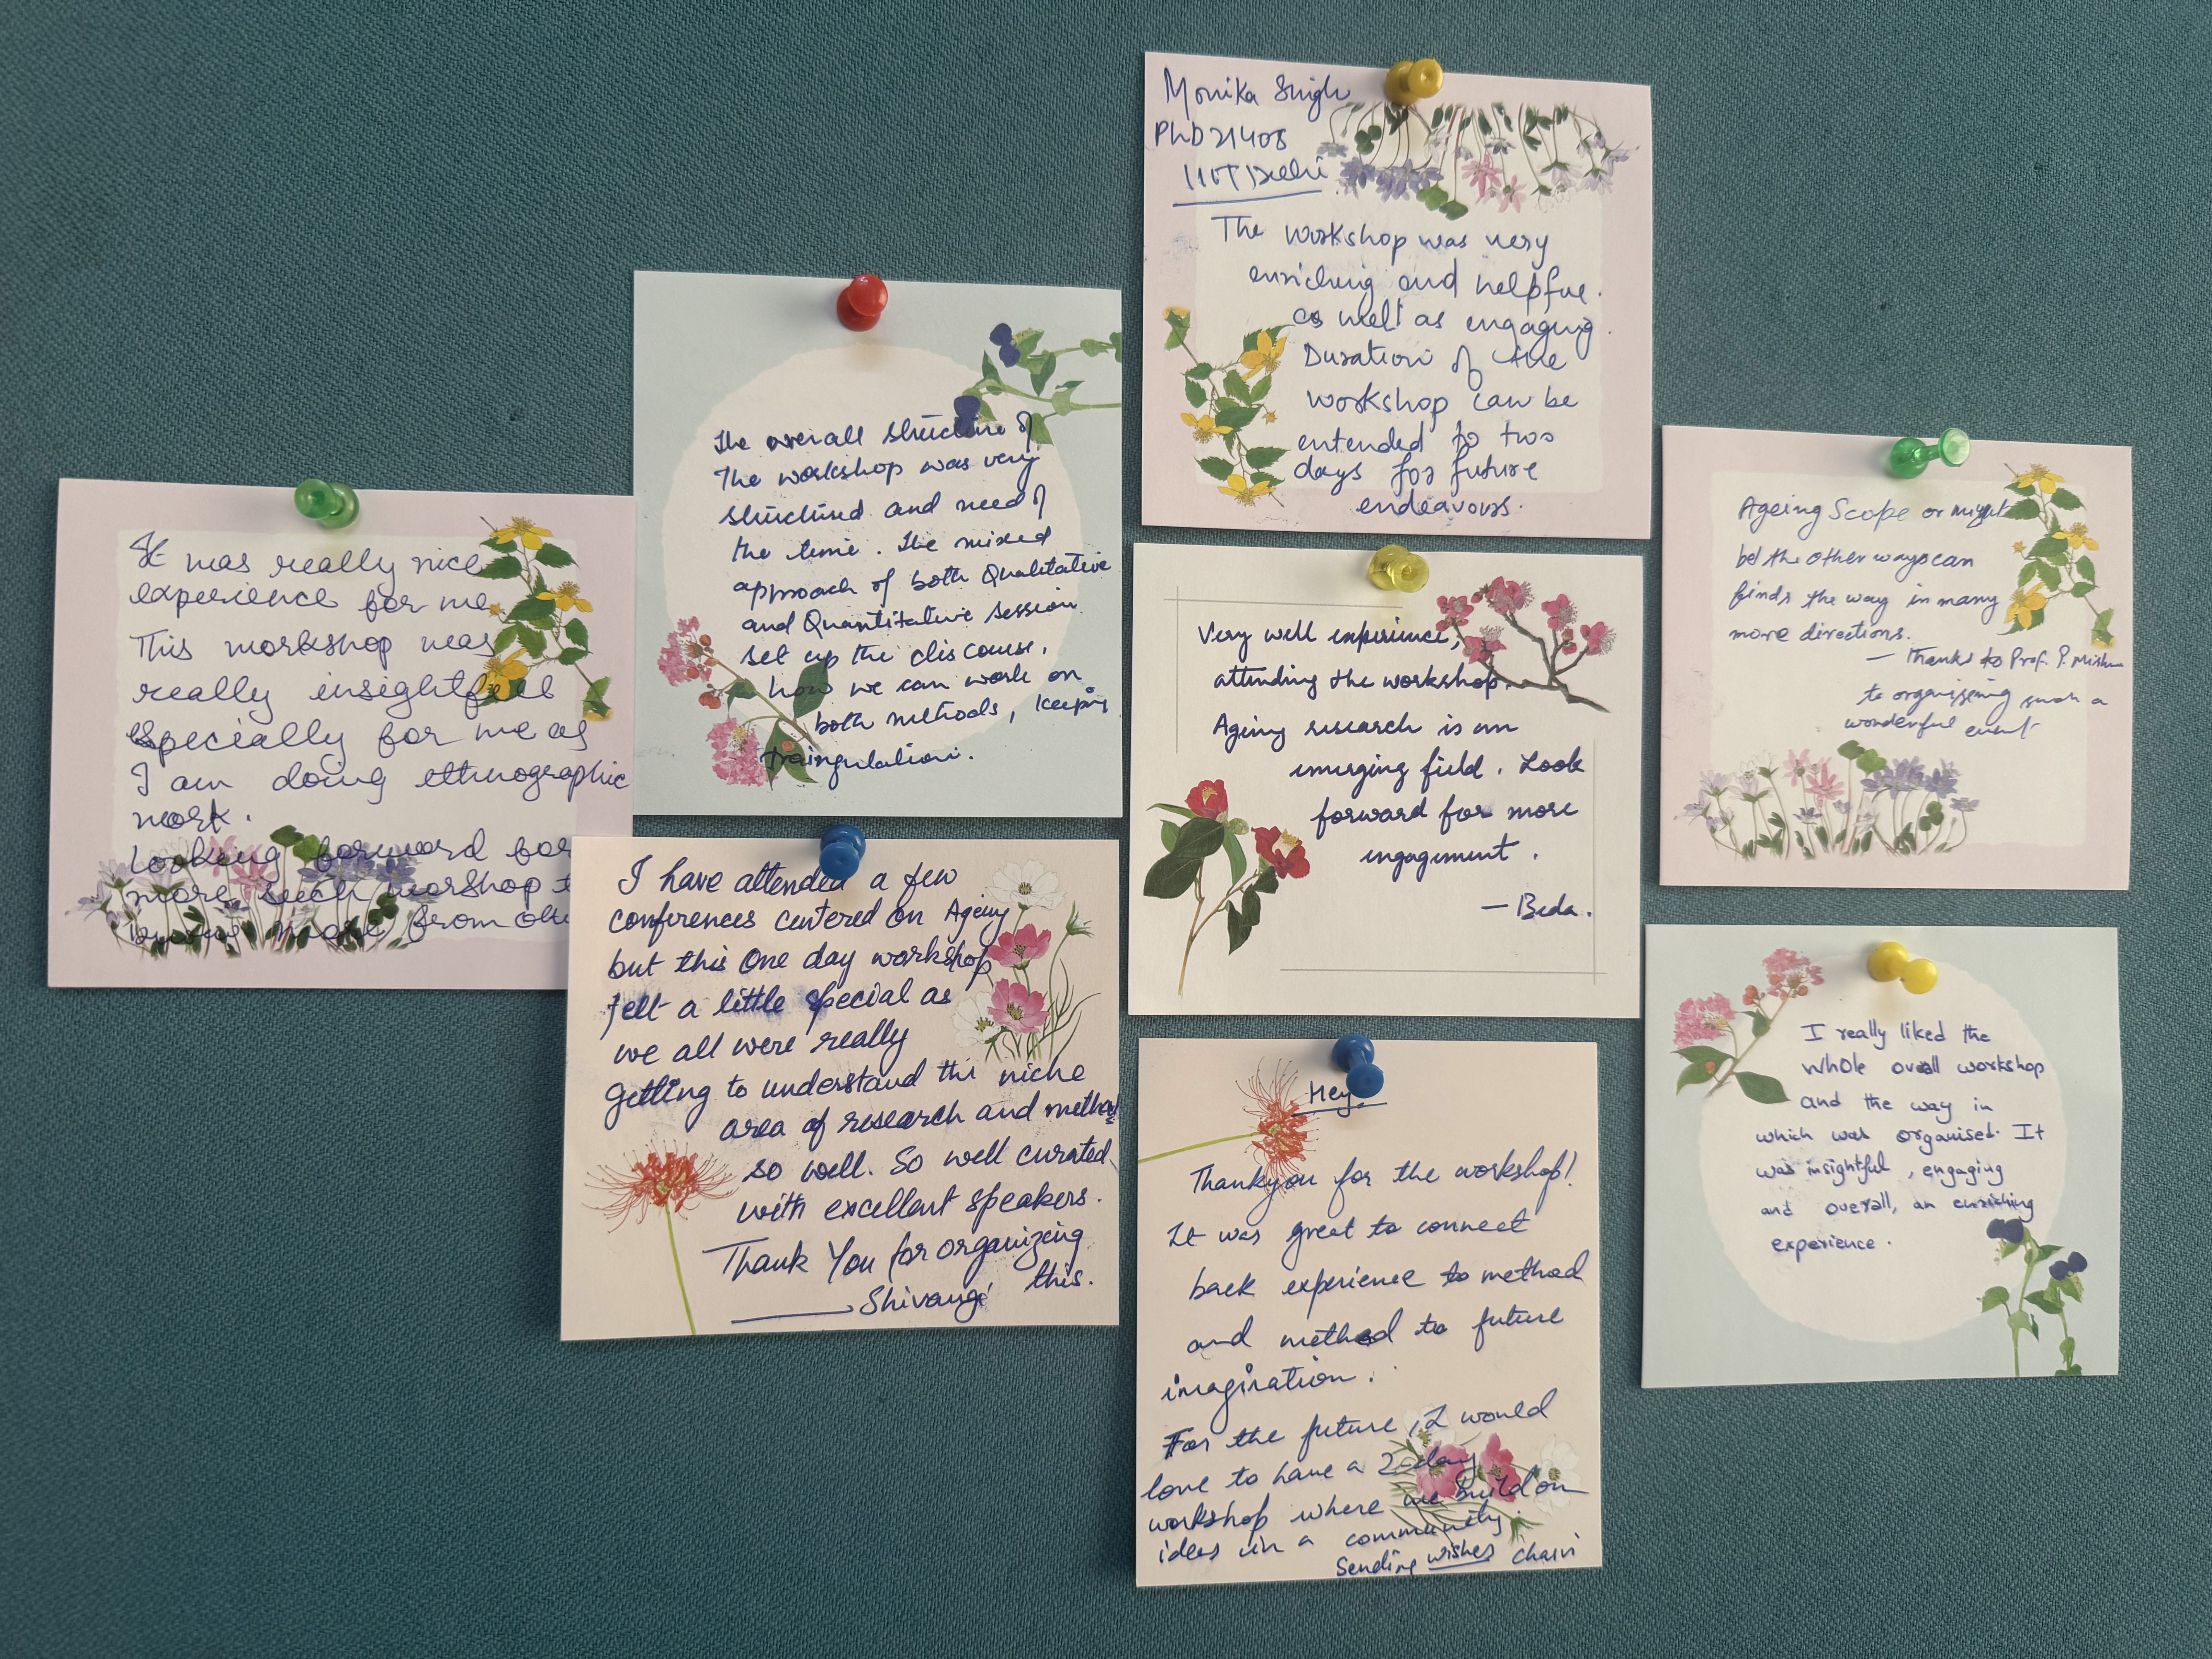 It was really nice
experience for me.
This workshop was
really insightful
especially for me as
I am doing ethnographic
work.
Looking forward for
more such worshop
more from
The overall structure of
The workshop was very
structured and need of
the time. The mixed
approach of both Qualitative
and Quantitative session
set up the discourse,
how we can work on
both methods, keeping
traingulation.
I have attended a few
conferences centered on Ageing
but this One day workshop
felt a little special as
we all were really
getting to understand the niche
area of research and methods
so well. So well curated
with excellent speakers.
Thank You for organizing
this.
Shivangi
Monika Singh
PhD21408
IIIT Delhi
The workshop was very
enriching and helpful.
as well as engaging.
Duration of the
workshop can be
entended to two
days for future
endeavours.
Very well experience,
attending the workshop.
Ageing research is an
emerging field. Look
forward for more
engagement.
— Beda.
Hey,
Thankyou for the workshop!
It was great to connect
back experience to method
and method to future
imagination.
For the future, I would
love to have a 2-day
workshop where we build on
ideas in a community.
Sending wishes Charvi
Ageing Scope or might
be the other ways can
finds the way in many
more directions.
— Thanks to Prof. P.
to organizing such a
wonderful event
I really liked the
whole overall workshop
and the way in
which was organised. It
was insightful, engaging
and overall, an enriching
experience.